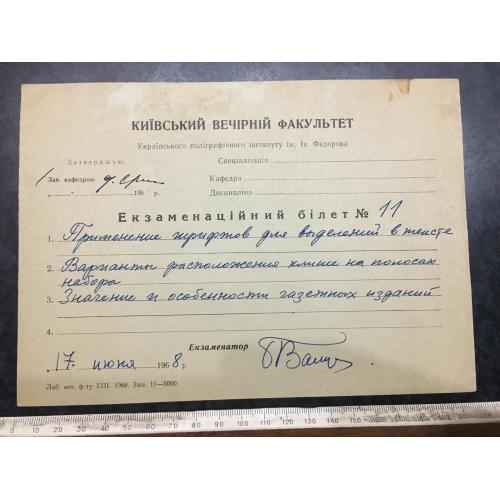 КИЇВСЬКИЙ ВЕЧІРНІЙ ФАКУЛЬТЕТ
Українського поліграфічного інституту ім. Ів. Федорова
Затверджую: Спеціалізація
Зав. кафедрою Кафедра
196 р. Дисципліна
Екзаменаційний білет № 11
1. Применение шрифтов для выделений в тексте
2. Варианты расположения клише на полосах
набора
3. Значение и особенности газетных изданий
4.
Екзаменатор
17. июня 1968 р.
Лаб. веч. ф-ту УПІ. 1968. Зам. 11—5000.
0 10 20 30 40 50 60 70 80 90 100 110 120 130 140 150 160 170 180 190 200 210 220